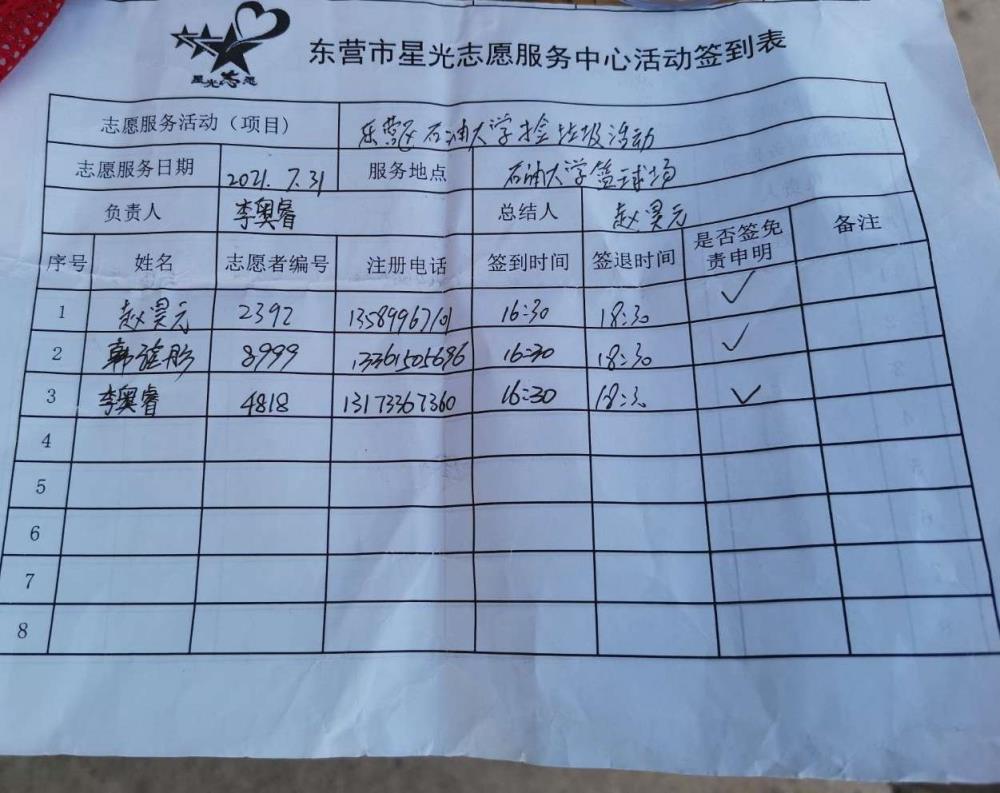 星光志愿
东营市星光志愿服务中心活动签到表
志愿服务活动（项目） 东营区石油大学捡垃圾活动
志愿服务日期 2021.7.31 服务地点 石油大学篮球场
负责人 李奥睿 总结人 赵昊元
序号 姓名 志愿者编号 注册电话 签到时间 签退时间 是否签免责申明 备注
1 赵昊元 2392 13589967101 16:30 18:30 ✓
2 韩 8999 13361505696 16:30 18:30 ✓
3 李奥睿 4818 13173367360 16:30 18:30 ✓
4
5
6
7
8